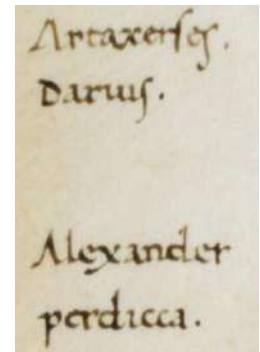 Artaxerses.
Darius.
Alexander
perdicca.